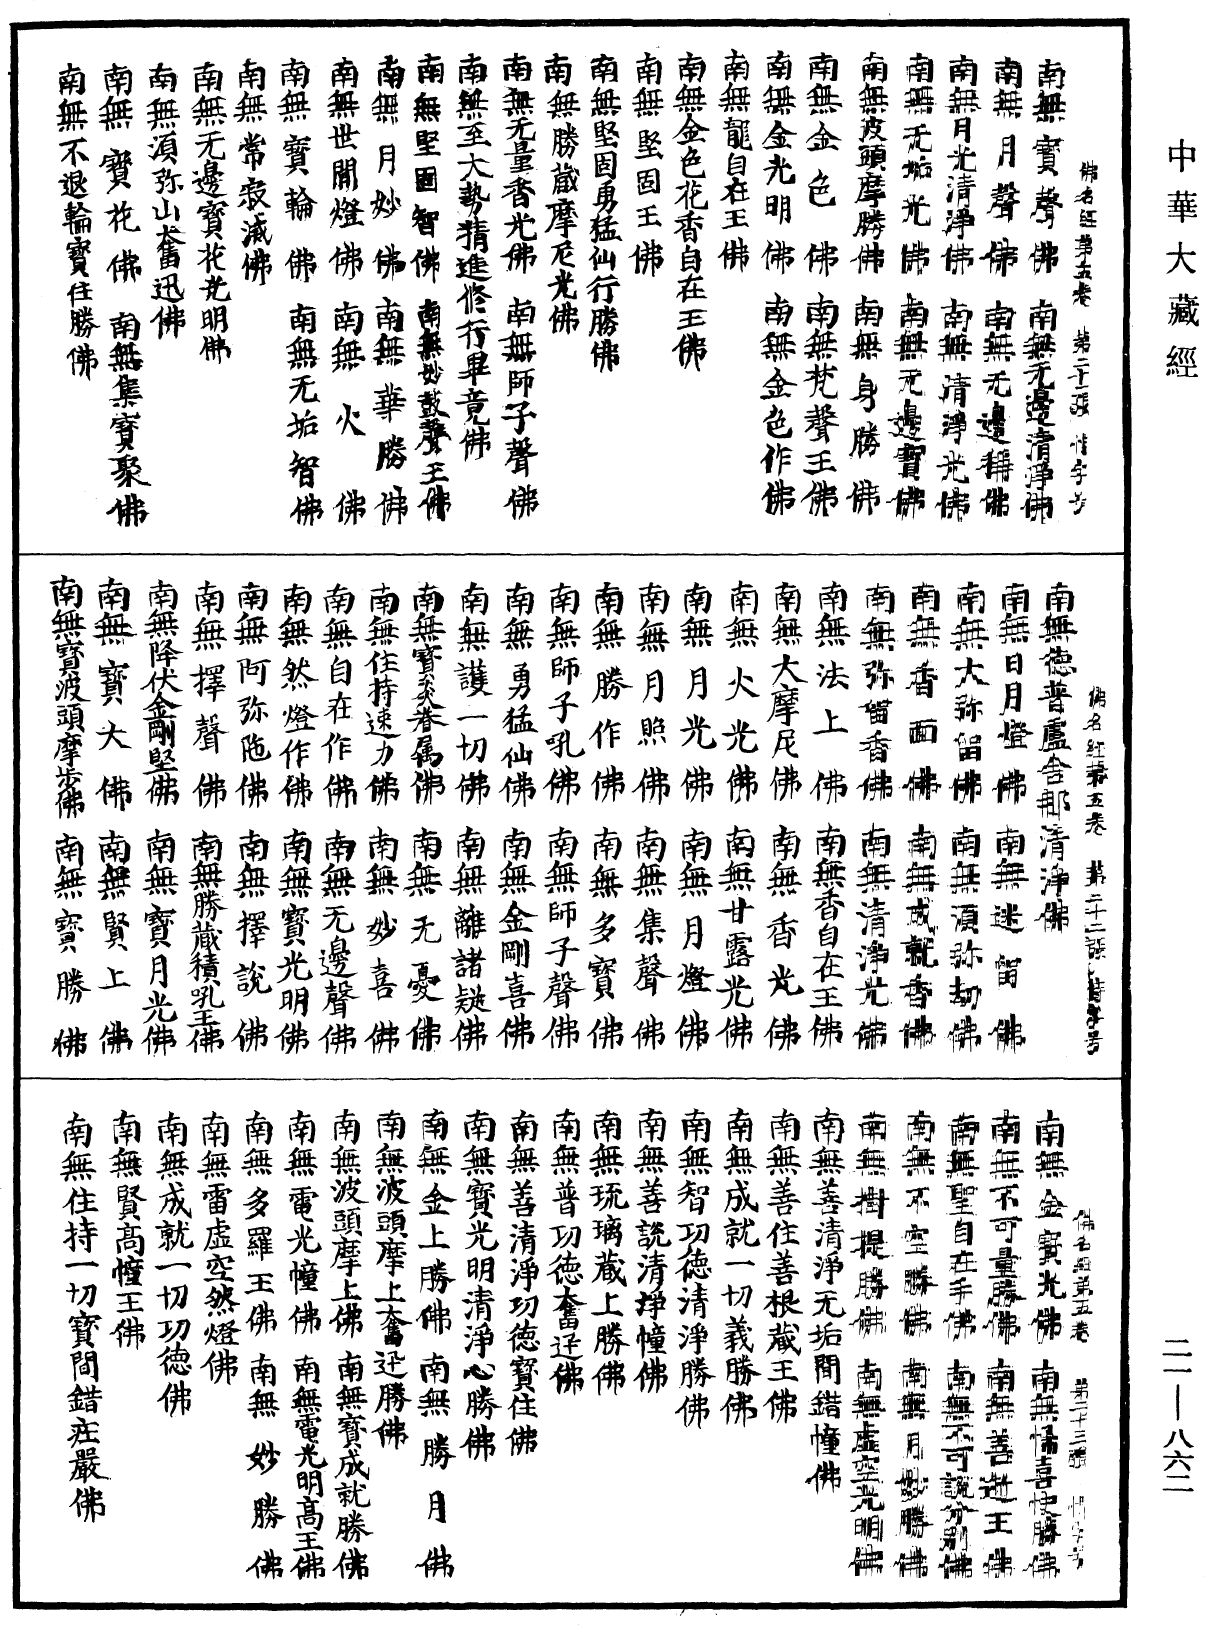 中華大藏經
佛名經第五卷 第二十一張
南無寶聲佛 南無无邊清淨佛
南無月聲佛 南無无邊稱佛
南無月光清淨佛 南無清淨光佛
南無无垢光佛 南無无邊寶佛
南無波頭摩勝佛 南無身勝佛
南無金色佛 南無梵聲王佛
南無金光明佛 南無金色作佛
南無龍自在王佛
南無金色花香自在王佛
南無堅固王佛
南無堅固勇猛仙行勝佛
南無勝藏摩尼光佛
南無无量香光佛 南無師子聲佛
南無至大勢精進修行畢竟佛
南無堅固智佛 南無妙鼓聲王佛
南無月妙佛 南無華勝佛
南無世間燈佛 南無火佛
南無寶輪佛 南無无垢智佛
南無常寂滅佛
南無无邊寶花光明佛
南無須弥山奮迅佛
南無寶花佛 南無集寶聚佛
南無不退輪寶住勝佛
佛名經第五卷 第二十二張
南無德普盧舍那清淨佛
南無日月燈佛 南無迷留佛
南無大弥留佛 南無須弥劫佛
南無香面佛 南無成就香佛
南無弥留香佛 南無清淨光佛
南無法上佛 南無香自在王佛
南無大摩尼佛 南無香光佛
南無火光佛 南無甘露光佛
南無月光佛 南無月燈佛
南無月照佛 南無集聲佛
南無勝作佛 南無多寶佛
南無師子吼佛 南無師子聲佛
南無勇猛仙佛 南無金剛喜佛
南無護一切佛 南無離諸疑佛
南無寶炎眷属佛 南無无憂佛
南無住持速力佛 南無妙喜佛
南無自在作佛 南無无邊聲佛
南無然燈作佛 南無寶光明佛
南無阿弥陁佛 南無擇說佛
南無擇聲佛 南無勝藏積吼王佛
南無降伏金剛堅佛 南無寶月光佛
南無寶大佛 南無賢上佛
南無寶波頭摩步佛 南無寶勝佛
佛名經第五卷 第二十三張
南無金寶光佛 南無憘喜快勝佛
南無不可量勝佛 南無善逝王佛
南無聖自在手佛 南無不可說分別佛
南無不空勝佛 南無月妙勝佛
南無樹提勝佛 南無虛空光明佛
南無善清淨无垢間錯幢佛
南無善住善根藏王佛
南無成就一切義勝佛
南無智功德清淨勝佛
南無善說清淨幢佛
南無琉璃藏上勝佛
南無普功德奮迅佛
南無善清淨功德寶住佛
南無寶光明清淨心勝佛
南無金上勝佛 南無勝月佛
南無波頭摩上奮迅勝佛
南無波頭摩上佛 南無寶成就勝佛
南無電光幢佛 南無電光明高王佛
南無多羅王佛 南無妙勝佛
南無雷虛空然燈佛
南無成就一切功德佛
南無賢高幢王佛
南無住持一切寶間錯庄嚴佛
二一—八六二